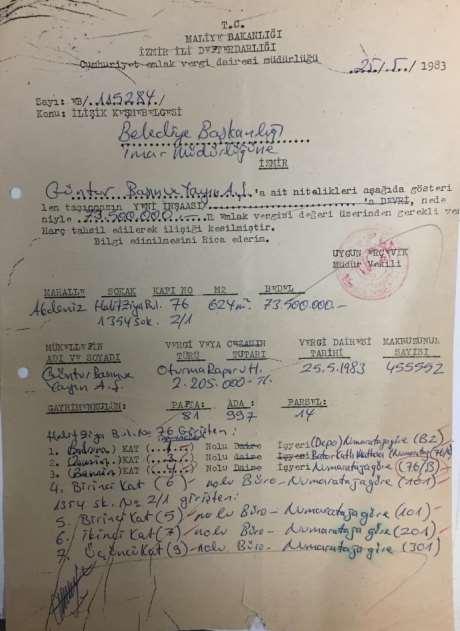 T.C.
MALİYE BAKANLIĞI
İZMİR İLİ DEFTERDARLIĞI
Cumhuriyet emlak vergi dairesi müdürlüğü
25/5/1983
Sayı: EB/.115284./
Konu: İLİŞİK KESMEBELGESİ
Belediye Başkanlığı
İmar Müdürlüğüne
İZMİR
Yayın A.Ş.'a ait nitelikleri aşağıda gösteri
len taşınmazın YENİ İNŞAASI 'a DEVRİ, nede
niyle 73.500.000.— Tl Emlak vergisi değeri üzerinden gerekli ver
Harç tahsil edilerek ilişiği kesilmiştir.
Bilgi edinilmesini Rica ederim.
UYGUN
Müdür Vekili
MAHALLE SOKAK KAPI NO M2 BEDEL
Akdeniz Halit Ziya Bul. 76 624 m² 73.500.000.—
1354 sok. 2/1
MÜKELLEFİN VERGİ VEYA CEZANIN VERGİ DAİRESİ MAKBUZUNUN
ADI VE SOYADI TÜRÜ TUTARI TARİHİ SAYISI
Yayın A.Ş. Oturma Raporu H. 25.5.1983 455552
2.205.000.-Tl.
GAYRİMENKULÜN: PAFTA: ADA: PARSEL:
81 997 14
Halit Ziya Bul. No 76 Girişten:
1. KAT (1) Nolu Daire İşyeri (Depo) Numaratajagöre (B2)
2. KAT (3) Nolu Daire İşyeri
3. KAT (4) Nolu Daire İşyeri Numaratajagöre (76/B)
4. Birinci Kat (6) nolu Büro — Numaratajagöre (101)
1354 sk. No 2/1 girişten:
5. Birinci Kat (5) nolu Büro — Numaratajagöre (101)
6. İkinci Kat (7) nolu Büro — Numarataja göre (201)
7. Üçüncü Kat (9) nolu Büro — Numarataja göre (301)